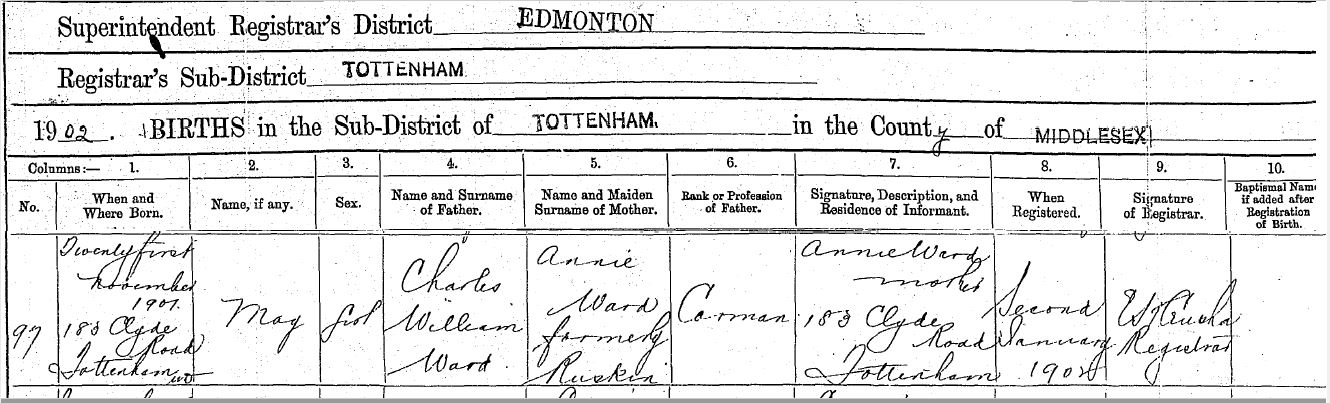 Superintendent Registrar's District EDMONTON
Registrar's Sub-District TOTTENHAM
1902. BIRTHS in the Sub-District of TOTTENHAM. in the County of MIDDLESEX
Columns:— 1. 2. 3. 4. 5. 6. 7. 8. 9. 10.
No.
When and
Where Born.
Name, if any.
Sex.
Name and Surname
of Father.
Name and Maiden
Surname of Mother.
Rank or Profession
of Father.
Signature, Description, and
Residence of Informant.
When
Registered.
Signature
of Registrar.
Baptismal Name
if added after
Registration
of Birth.
97
Twenty first
November
1901.
183 Clyde
Road
Tottenham
May
Girl
Charles
William
Ward
Annie
Ward
formerly
Ruskin
Carman
Annie Ward
mother
183 Clyde
Road
Tottenham
Second
January
1902
Registrar